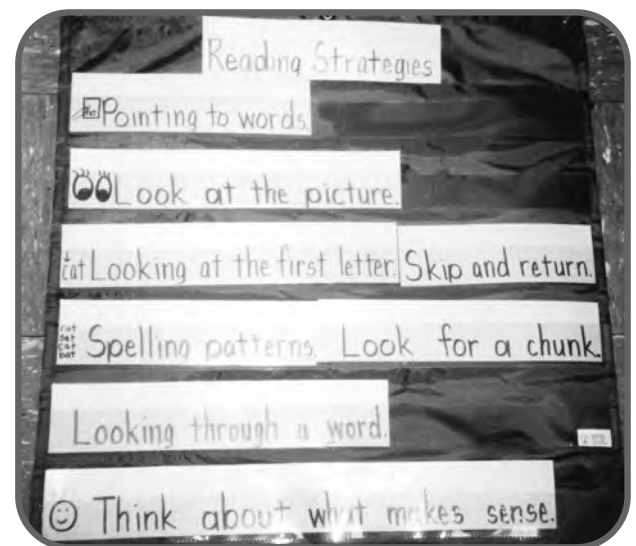 Reading Strategies
Pointing to words.
Look at the picture.
cat Looking at the first letter. Skip and return.
rat
cat
bat
Spelling patterns. Look for a chunk.
Looking through a word.
Think about what makes sense.